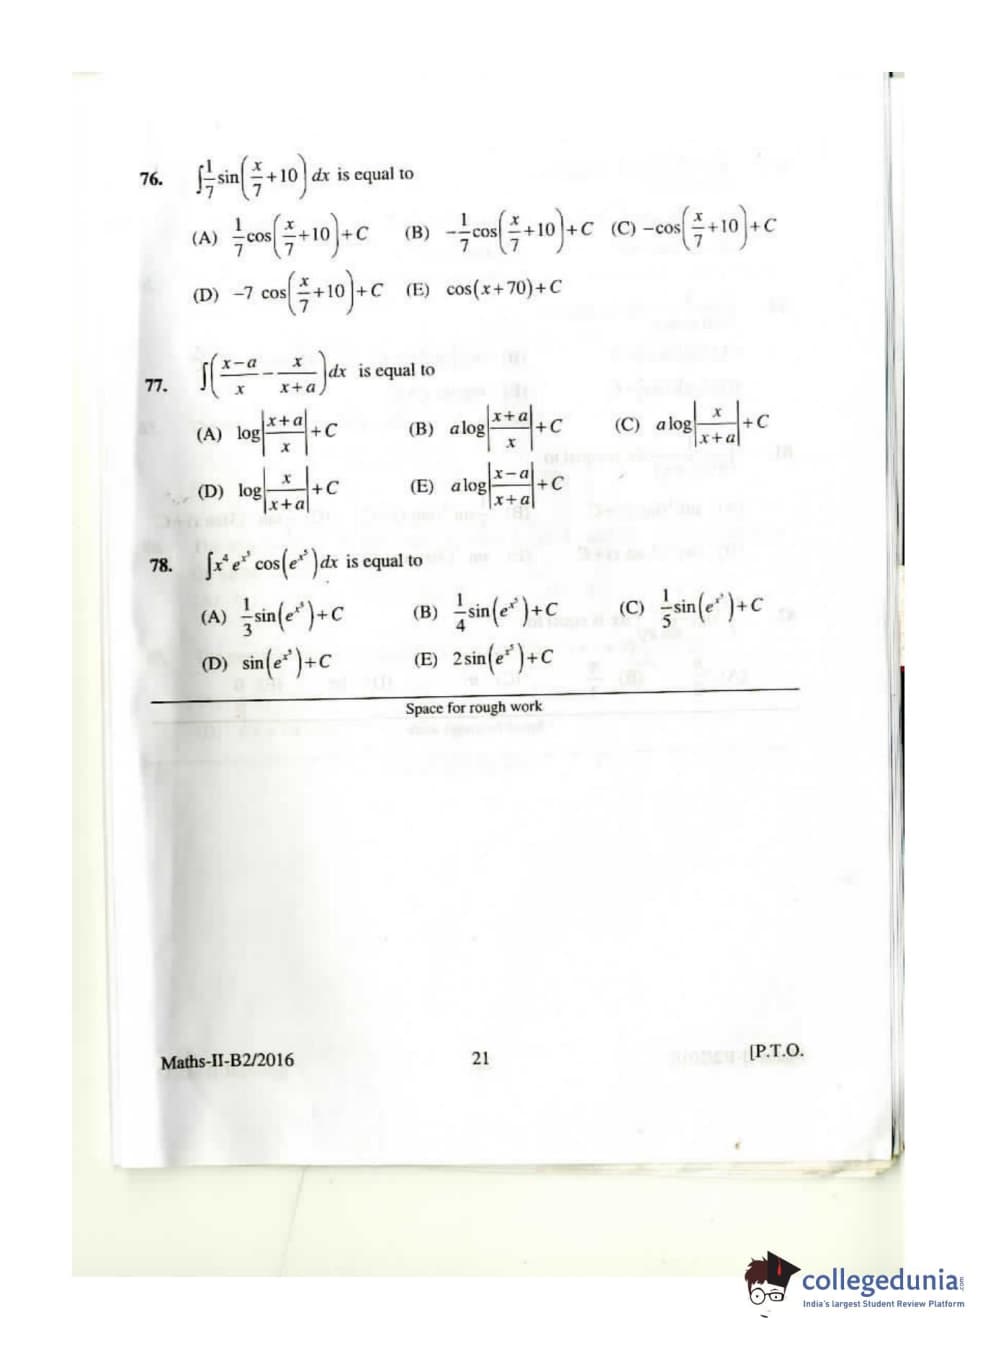 76. ∫ 1/7 sin(x/7 + 10) dx is equal to
(A) 1/7 cos(x/7 + 10) + C (B) −1/7 cos(x/7 + 10) + C (C) −cos(x/7 + 10) + C
(D) −7 cos(x/7 + 10) + C (E) cos(x + 70) + C
77. ∫((x − a)/x − x/(x + a)) dx is equal to
(A) log|(x + a)/x| + C (B) a log|(x + a)/x| + C (C) a log|x/(x + a)| + C
(D) log|x/(x + a)| + C (E) a log|(x − a)/(x + a)| + C
78. ∫x⁴ e^(x⁵) cos(e^(x⁵)) dx is equal to
(A) 1/3 sin(e^(x⁵)) + C (B) 1/4 sin(e^(x⁵)) + C (C) 1/5 sin(e^(x⁵)) + C
(D) sin(e^(x⁵)) + C (E) 2 sin(e^(x⁵)) + C
Space for rough work
Maths-II-B2/2016 21 [P.T.O.
collegedunia.com
India's largest Student Review Platform